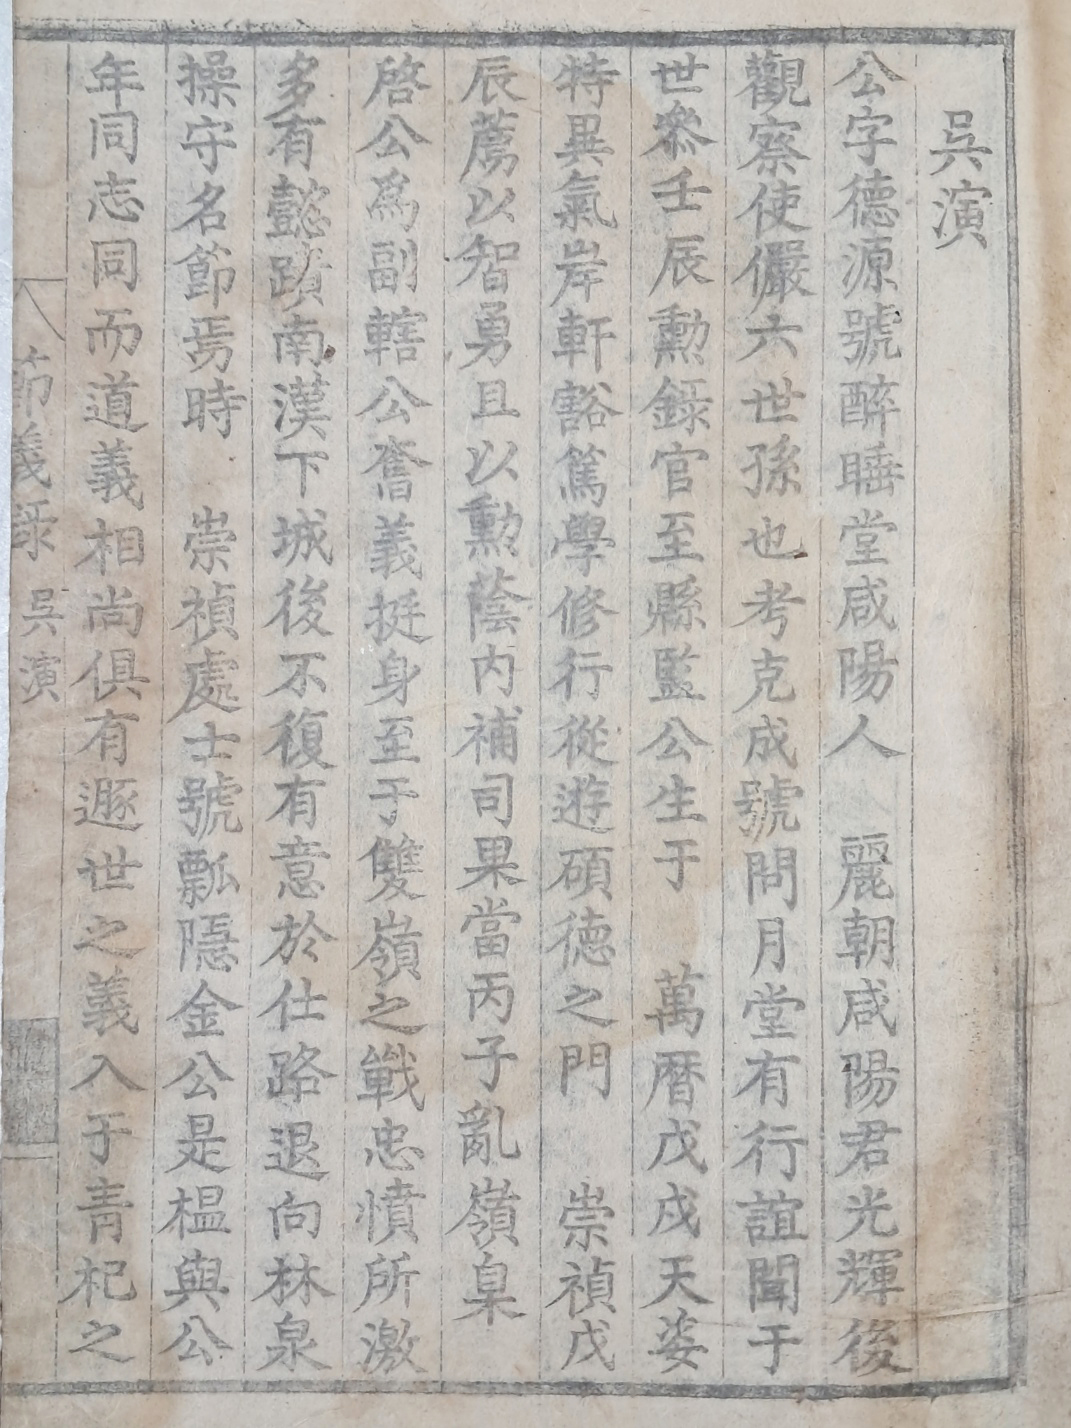 吳演
公字德源號醉睡堂咸陽人 麗朝咸陽君光輝後
觀察使儼六世孫也考克成號問月堂有行誼聞于
世參壬辰勳錄官至縣監公生于 萬曆戊戌天姿
特異氣岸軒豁篤學修行從遊碩德之門 崇禎戊
辰薦以智勇且以勳蔭內補司果當丙子亂嶺臬
啓公爲副轄公奮義挺身至于雙嶺之戰忠憤所激
多有懿蹟南漢下城後不復有意於仕路退向林泉
操守名節焉時 崇禎處士號瓢隱金公是榲與公
年同志同而道義相尚俱有遯世之義入于青杞之
節義录 吳演